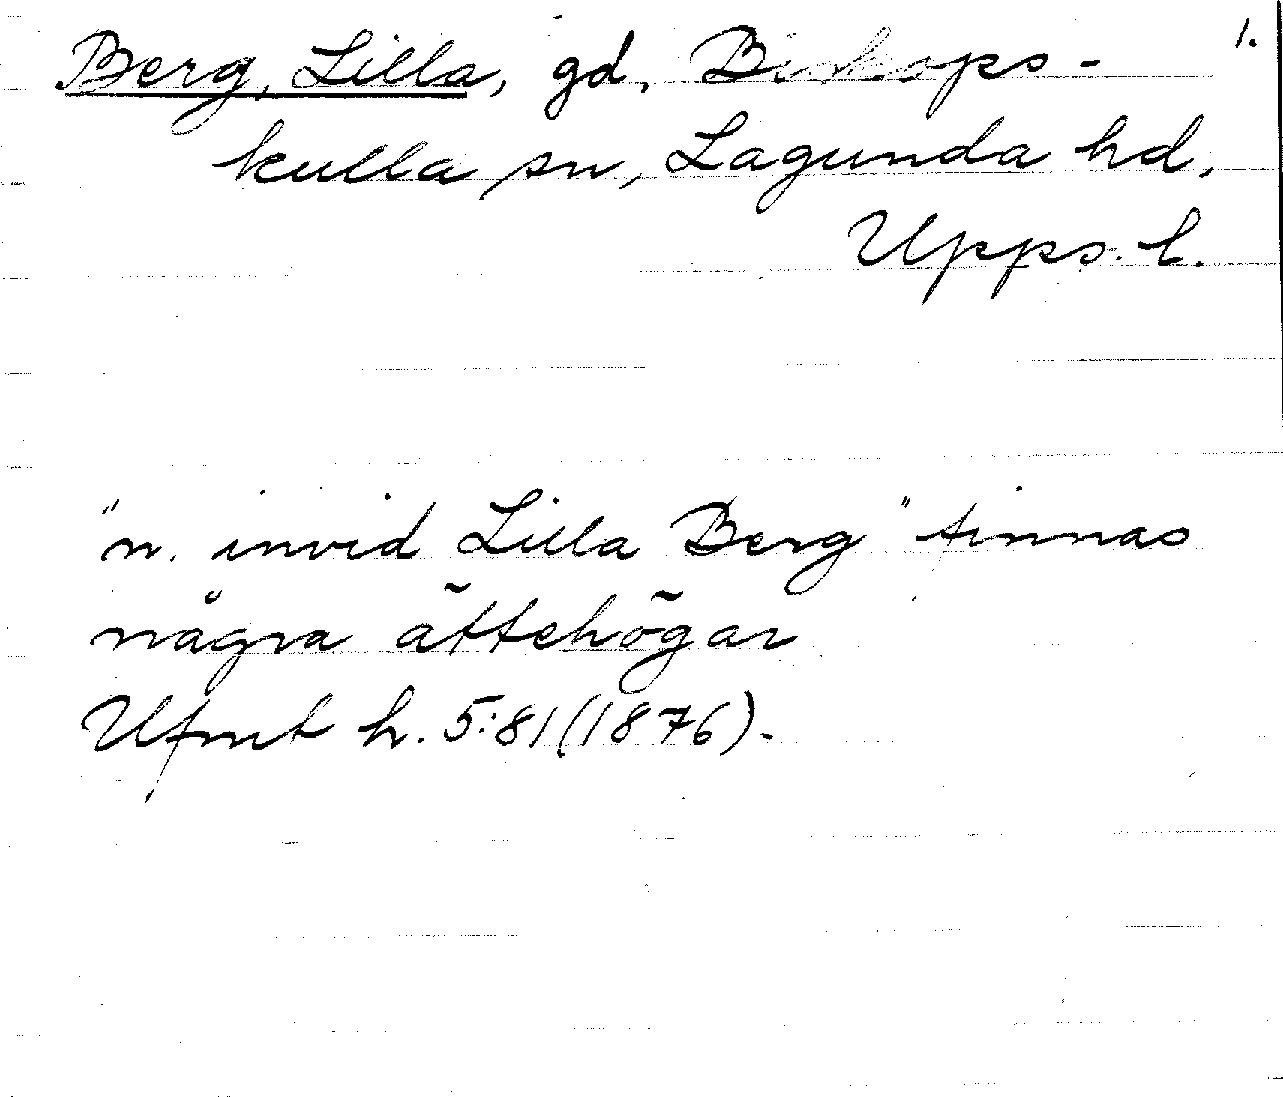 1.
Berg, Lilla, gd, Biskops-
kulla sn, Lagunda hd,
Upps. l.
"n. invid Lilla Berg" finnas
några ättehögar
Ufmt h. 5:81 (1876).